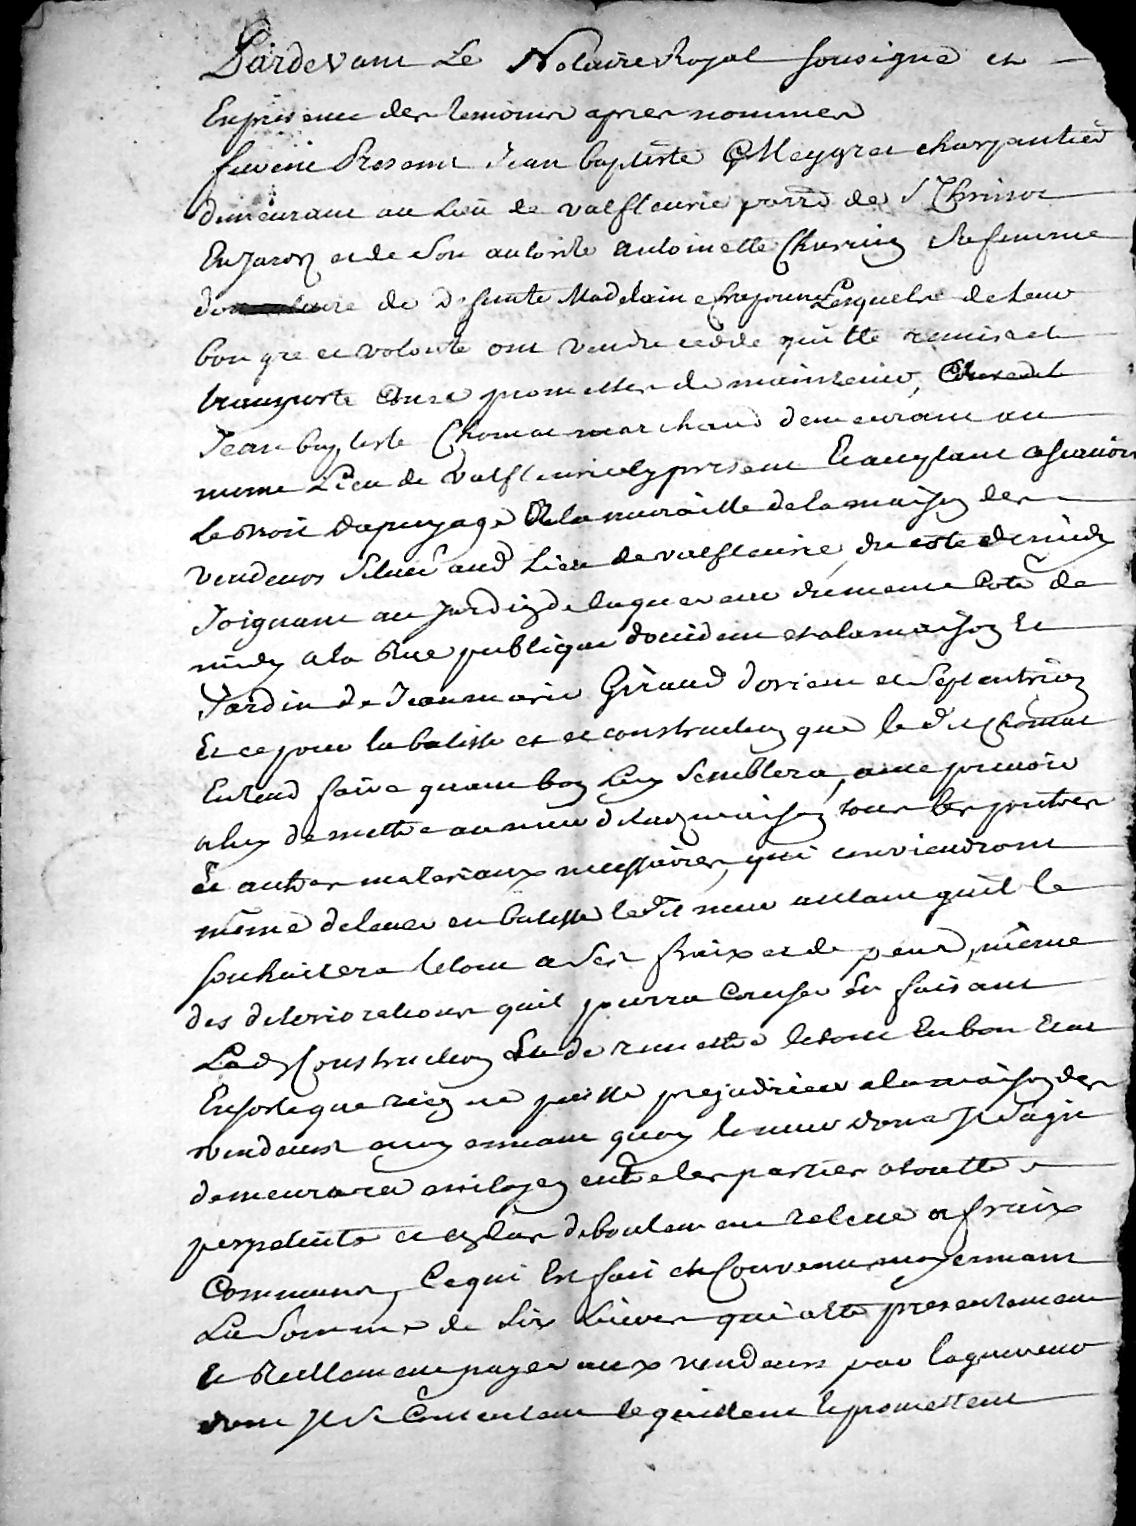 Pardevant Le Notaire Royal sousigné et
En presence des temoins apres nommes
furent Presents Jean baptiste Meygret charpentier
demeurant au Lieu de valfleurie parre de St Christot
En Jarez et de son autorité antoinette Chavrin sa femme
de deffunte Madelaine Lesquels de Leur
bon gré et volonté ont vendu cedé quitté remis et
transporté avec promesse de maintenir, 
Jean baptiste Chomat marchand demeurant au
meme Lieu de valfleurie icy present Et acceptant ascavoir
Le droit dapuyage a la muraille de la maison des
vendeurs Situeé aud Lieu de valfleurie, du coté de midy
Joignant au Jardin de laquereur du meme coté de
midy a la Rue publique doccident et a la maison Et
Jardin de Jean marie Giraud dorient et Septentrion
Et ce pour la batisse et construction que le dit Chomat
Entend faire quant bon Luy Semblera, avec pouvoir
a luy de mettre au mur de lad maison tous les poutres
Et autres materiaux necessaires, qui conviendront
même delever en batisse ledit mur autant quil le
souhaitera letout a Ses fraix et de peur, même
des deteriorations quil pourra Causer En faisant
Lad Construction Et de remettre letout En bon Etat
Ensorte que rien ne puisse prejudicier a la maison des
vendeurs moyennant quoy le mur dont Il Sagit
demeurera mitoyen entre les parties a toutte
perpetuité et en cas deboulement relevé a fraix
Communs, Ce qui Est fait et Convenu moyennant
La Somme de Six Livres qui a eté presentement
Et Reellement payeé aux vendeurs par laquereur
dont Ils Se Contentent le quittent Et promettent